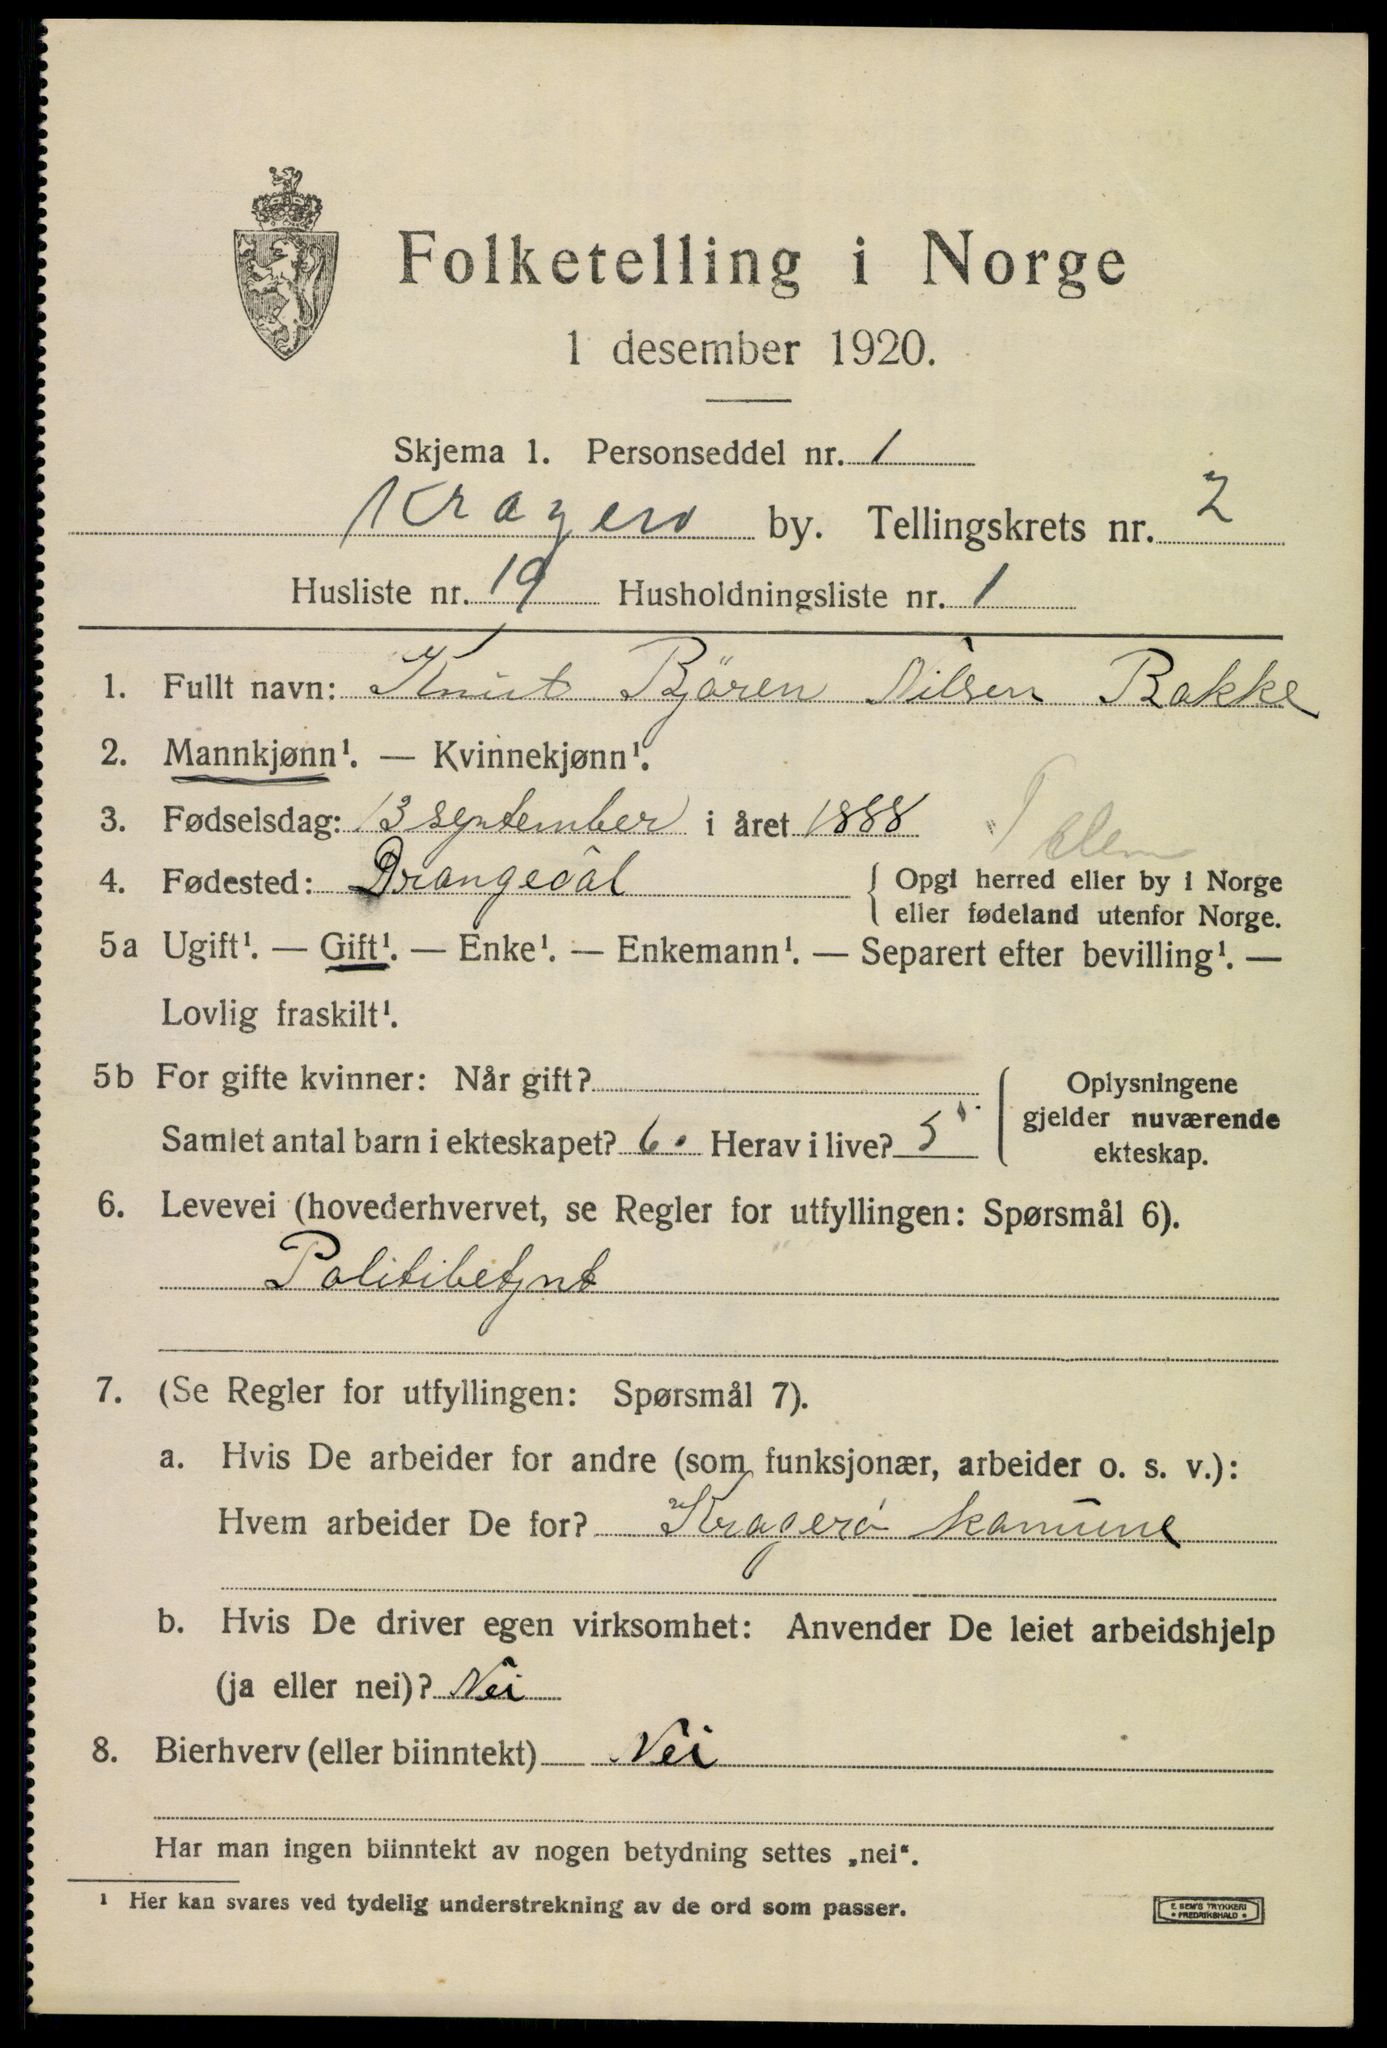 Folketelling i Norge
1 desember 1920.
Skjema 1. Personseddel nr. 1
Kragerø by. Tellingskrets nr. 2
Husliste nr. 19 Husholdningsliste nr. 1
1. Fullt navn: Knut Björen Nilsen Bakke
2. Mannkjønn¹. — Kvinnekjønn¹.
3. Fødselsdag: 13 september i året 1888
Telem
4. Fødested: Drangedal { Opgi herred eller by i Norge
eller fødeland utenfor Norge.
5a Ugift¹. — Gift¹. — Enke¹. — Enkemann¹. — Separert efter bevilling¹. —
Lovlig fraskilt¹.
5b For gifte kvinner: Når gift?
Samlet antal barn i ekteskapet? 6. Herav i live? 5
Oplysningene
gjelder nuværende
ekteskap.
6. Levevei (hovederhvervet, se Regler for utfyllingen: Spørsmål 6).
Politibetjnt
7. (Se Regler for utfyllingen: Spørsmål 7).
a. Hvis De arbeider for andre (som funksjonær, arbeider o. s. v.):
Hvem arbeider De for? Kragerø komune
b. Hvis De driver egen virksomhet: Anvender De leiet arbeidshjelp
(ja eller nei)? Nei
8. Bierhverv (eller biinntekt) Nei
Har man ingen biinntekt av nogen betydning settes „nei“.
¹ Her kan svares ved tydelig understrekning av de ord som passer.
E. SEM'S TRYKKERI
• FREDRIKSHALD •